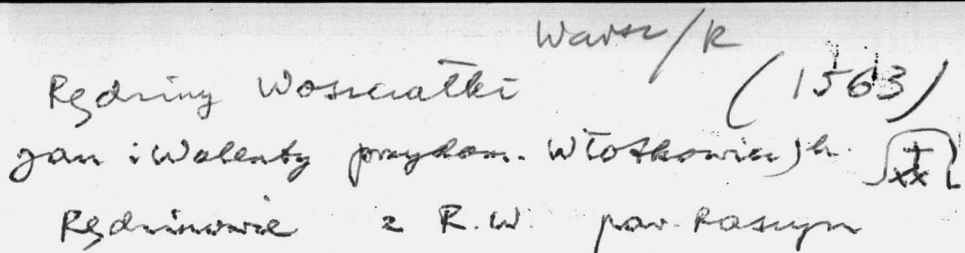 Warsz/R
Rędziny Woszczatki (1563)
Jan i Walenty przydom. Włostkowicz h.
Rędzinowie z R.W. par. Raszyn